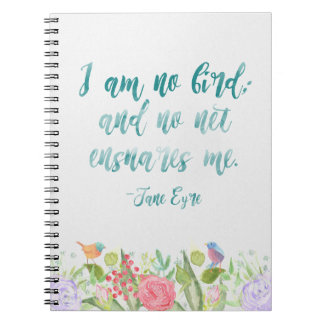 I am no bird;
and no net
ensnares me.
-Jane Eyre